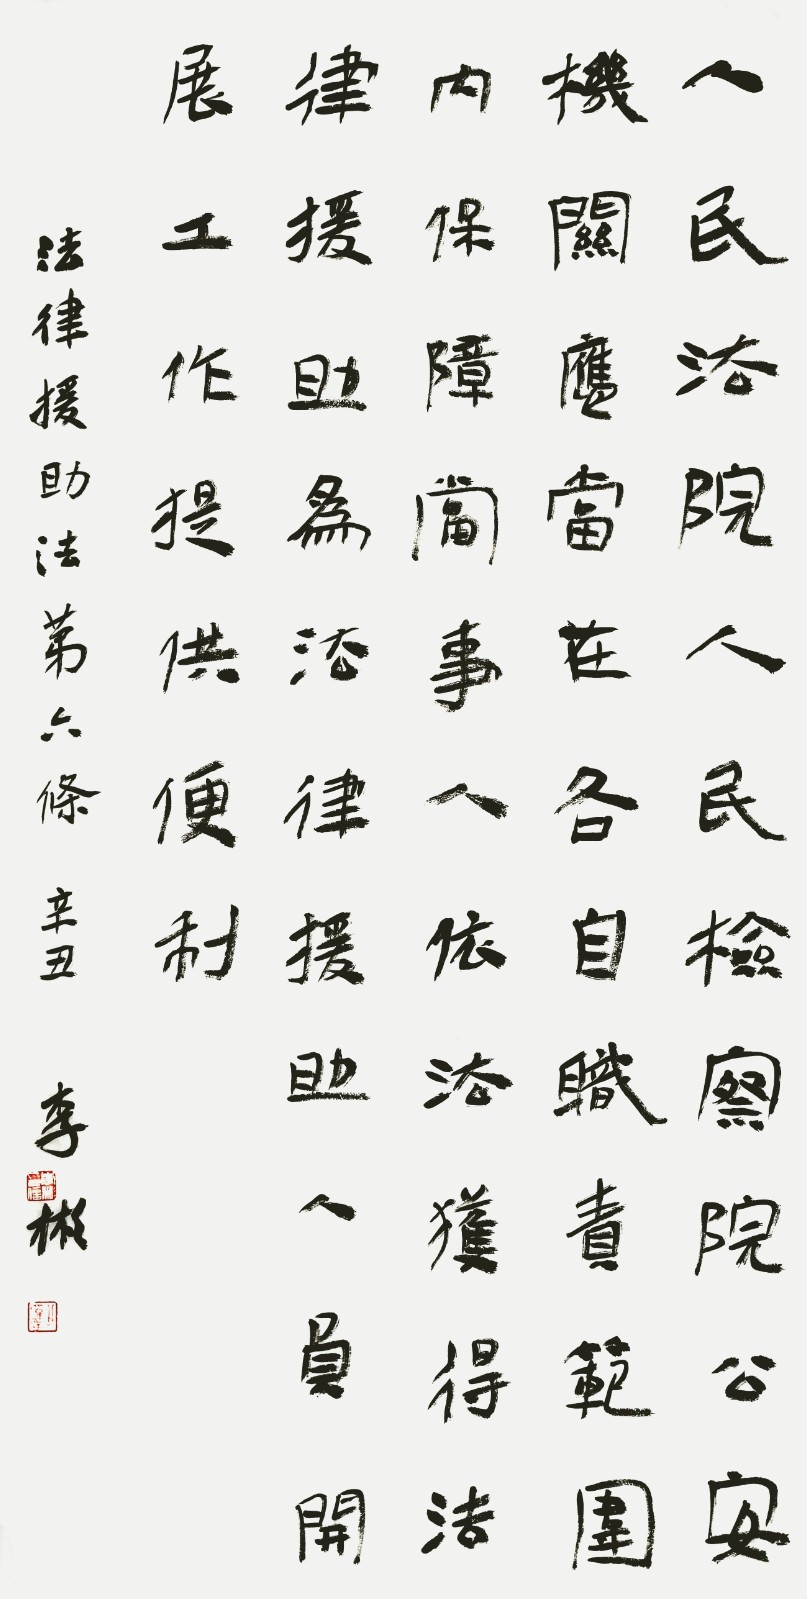 人民法院人民檢察院公安
機關應當在各自職責範圍
内保障當事人依法獲得法
律援助爲法律援助人員開
展工作提供便利
法律援助法第六條 辛丑 李彬